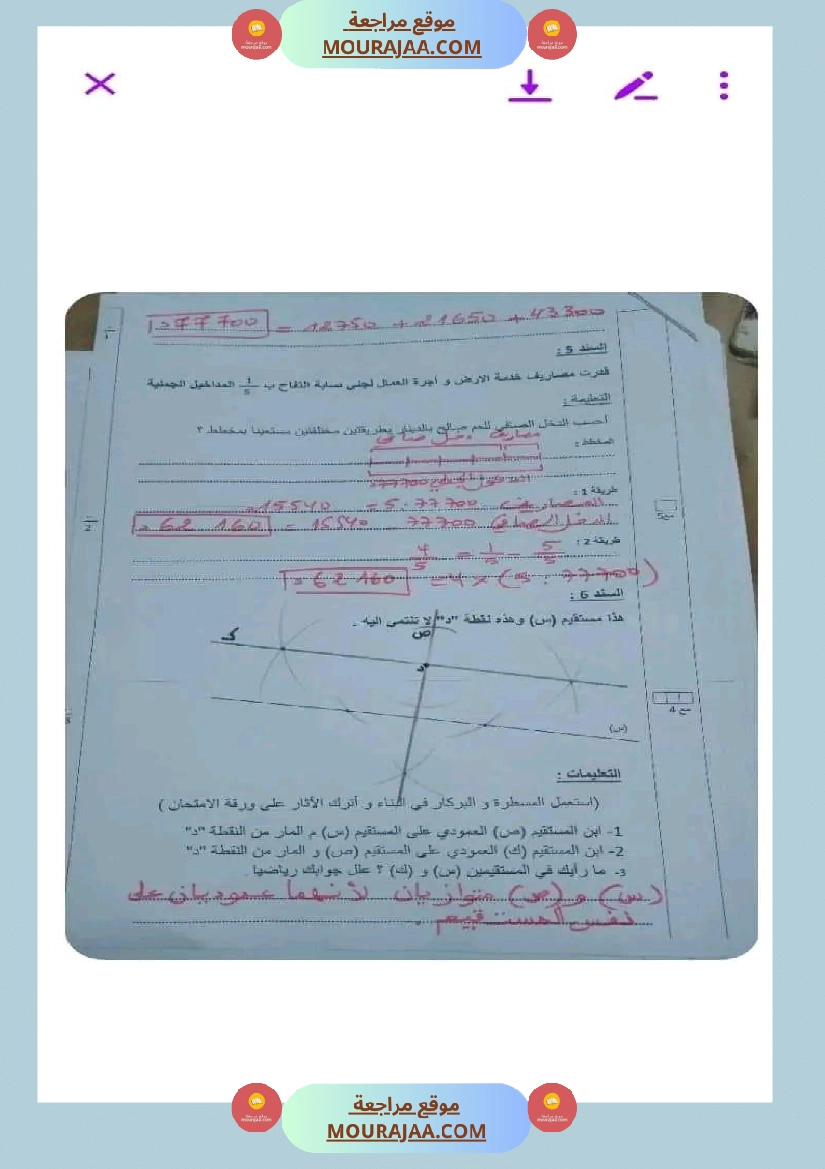 موقع مراجعة
MOURAJAA.COM
43300 + 21650 + 12750 = 77700
السند 5 :
قدرت مصاريف خدمة الارض و أجرة العمال لجني صابة التفاح ب 1/5 المداخيل الجملية
التعليمة :
أحسب الدخل الصافي للعم صالح بالدينار بطريقتين مختلفتين مستعينا بمخطط ؟
مصاريف دخل صافي
المخطط :
77700
طريقة 1 :
المصاريف 77700 : 5 = 15540
الدخل الصافي 77700 - 15540 = 62 160
طريقة 2 :
5/5 - 1/5 = 4/5
(77700 : 5) × 4 = 62 160
السند 6 :
هذا مستقيم (س) وهذه نقطة "د" لا تنتمي اليه .
ص
ك
د
(س)
مع 5
مع 4
التعليمات :
(استعمل المسطرة و البركار في البناء و أترك الآثار على ورقة الامتحان )
1- ابن المستقيم (ص) العمودي على المستقيم (س) م المار من النقطة "د"
2- ابن المستقيم (ك) العمودي على المستقيم (ص) و المار من النقطة "د"
3- ما رأيك في المستقيمين (س) و (ك) ؟ علل جوابك رياضيا
(س) و (ص) متوازيان لأنهما عموديان على
نفس المستقيم .
موقع مراجعة
MOURAJAA.COM